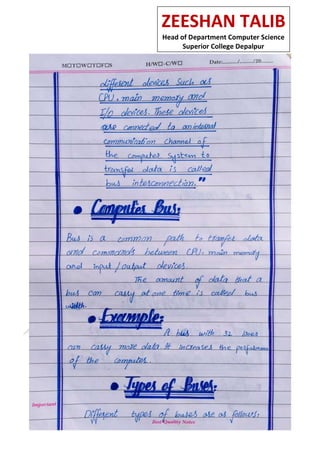 ZEESHAN TALIB
Head of Department Computer Science
Superior College Depalpur
M□T□W□T□F□S H/W□-C/W□ Date:........./........./20........
different devices such as
CPU, main memory and
I/o devices. These devices
are connected to an internal
communication channel of
the computer system to
transfer data is called
bus interconnection."
• Computer Bus:
Bus is a common path to transfer data
and commands between CPU, main memory
and input/output devices.
The amount of data that a
bus can carry at one time is called bus
width.
• Example:
A bus with 32 lines
can carry more data it increases the performance
of the computer.
• Types of Buses:
Important
Different types of buses are as follows:
Best Quality Notes